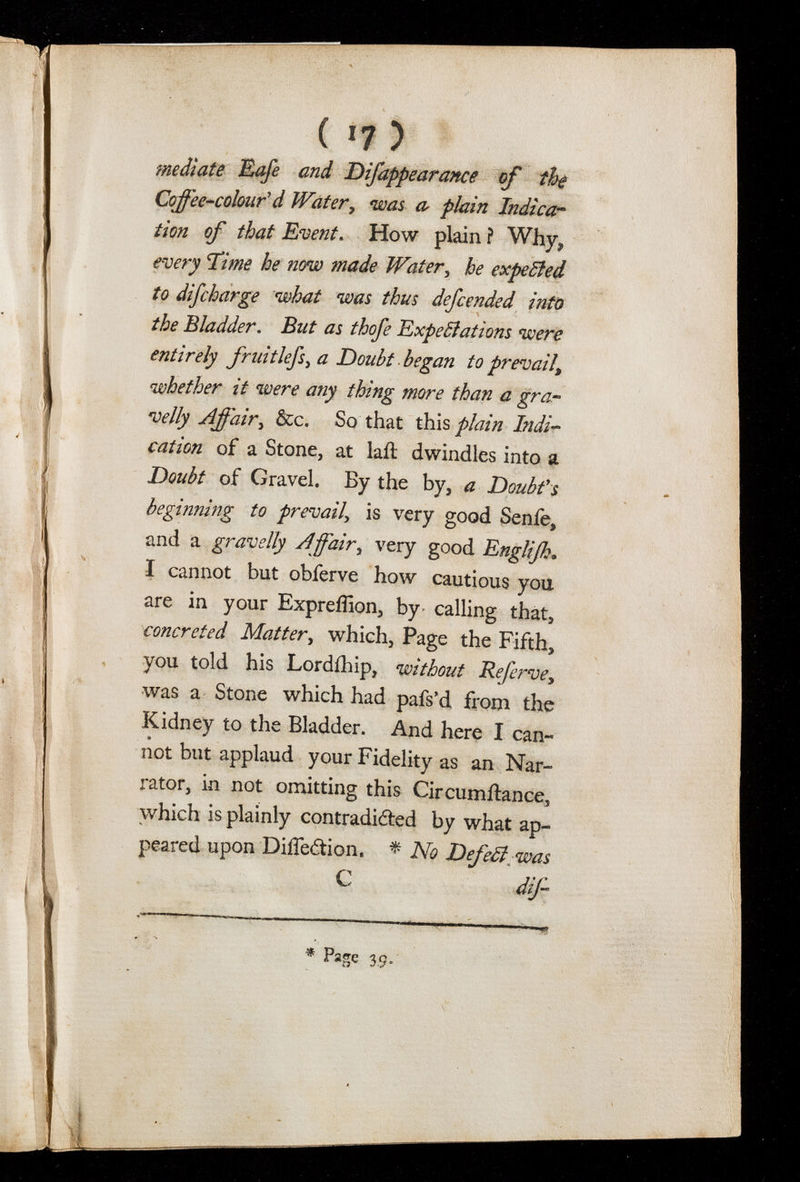 ( 17 )
mediate Eaſe and Diſappearance of the
Coffee-colour'd Water, was a plain Indica-
tion of that Event. How plain? Why,
every Time he now made Water, he expected
to diſcharge what was thus deſcended into
the Bladder. But as thoſe Expectations were
entirely fruitleſs, a Doubt began to prevail,
whether it were any thing more than a gra-
velly Affair, &c. So that this plain Indi-
cation of a Stone, at laſt dwindles into a
Doubt of Gravel. By the by, a Doubt's
beginning to prevail, is very good Senſe,
and a gravelly Affair, very good Engliſh.
I cannot but obſerve how cautious you
are in your Expreſſion, by calling that,
concreted Matter, which, Page the Fifth,
you told his Lordſhip, without Reſerve,
was a Stone which had paſs'd from the
Kidney to the Bladder. And here I can-
not but applaud your Fidelity as an Nar-
rator, in not omitting this Circumſtance,
which is plainly contradicted by what ap-
peared upon Diſſection. * No Defect was
C diſ-
* Page 39.